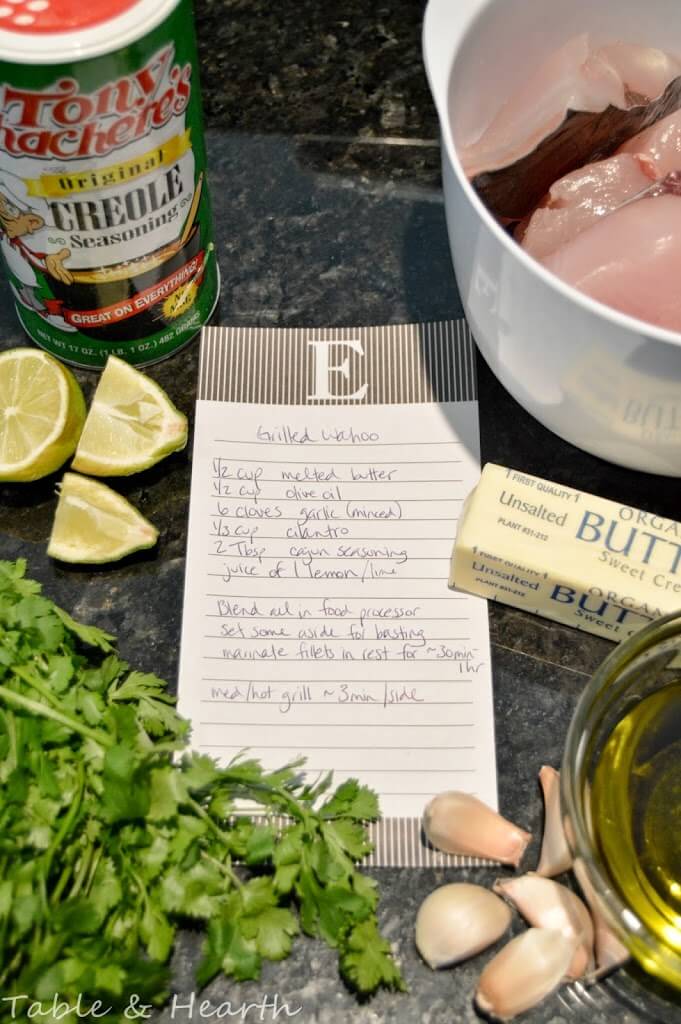 Tony
hachere's
Original
CREOLE
Seasoning
GREAT ON EVERYTHING!
NET WT 17 OZ. (1 LB. 1 OZ.) 482 GRAMS
E
Grilled Wahoo
1/2 cup melted butter
1/2 cup olive oil
6 cloves garlic (minced)
1/3 cup cilantro
2 Tbsp cajun seasoning
juice of 1 lemon/lime
Blend all in food processor
set some aside for basting
marinate fillets in rest for ~30min-
1hr
med/hot grill ~3min/side
1 FIRST QUALITY 1
ORGA
Unsalted
BUTT
PLANT #31-212
Sweet Cre
1 FIRST QUALITY 1
ORGAN
Unsalted
BUTT
PLANT #31-212
Sweet C
Table & Hearth